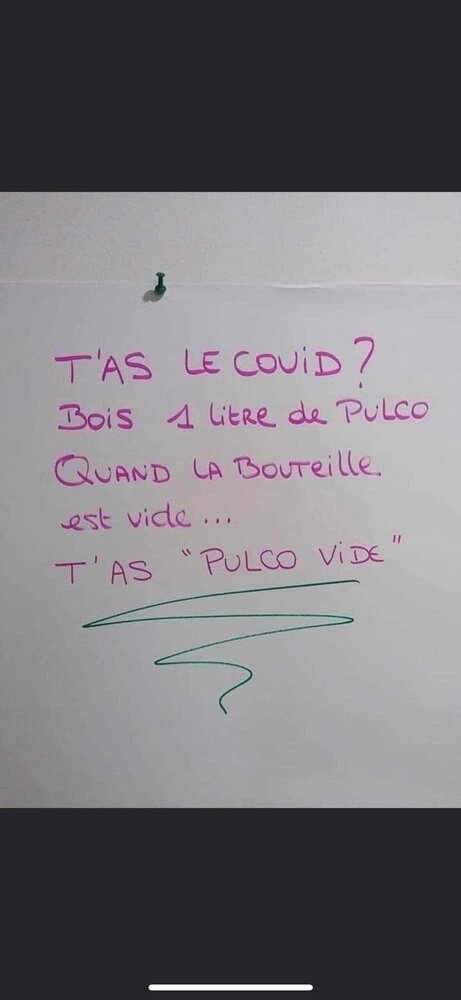 T'AS LE COVID ?
Bois 1 litre de PULCO
QUAND LA BOUTEILLE
est vide ...
T'AS "PULCO VIDE"